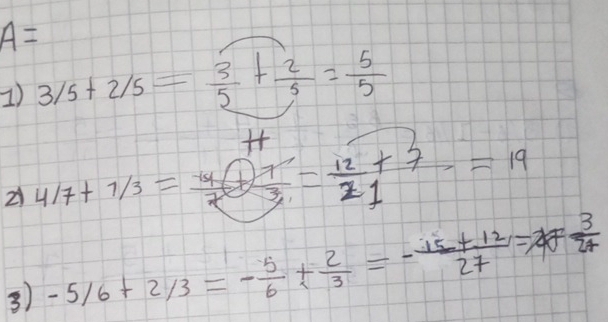 A=
1) 3/5 + 2/5 = 3/5 + 2/5 = 5/5
2) 4/7 + 1/3 = + = 12 + 7 / 21 = 19
3) -5/6 + 2/3 = -5/6 + 2/3 = - 15 + 12 / 27 = 3/27